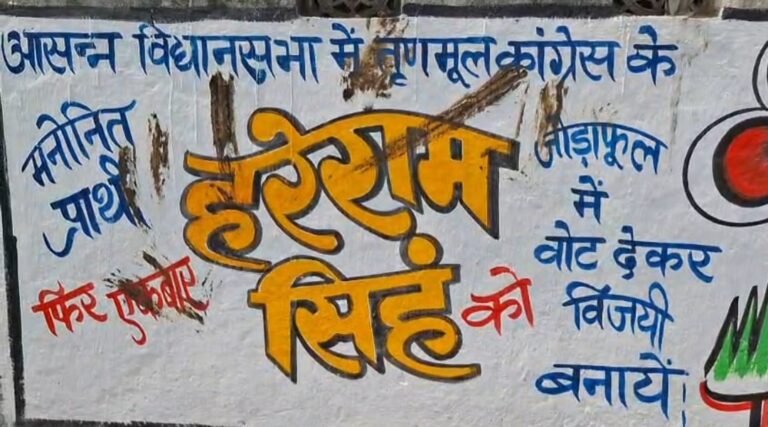 आसन्न विधानसभा में तृणमूल कांग्रेस के
मनोनित
प्रार्थी
हरेराम
सिहं को
फिर एकबार
जोड़ाफूल
में
वोट देकर
विजयी
बनायें।